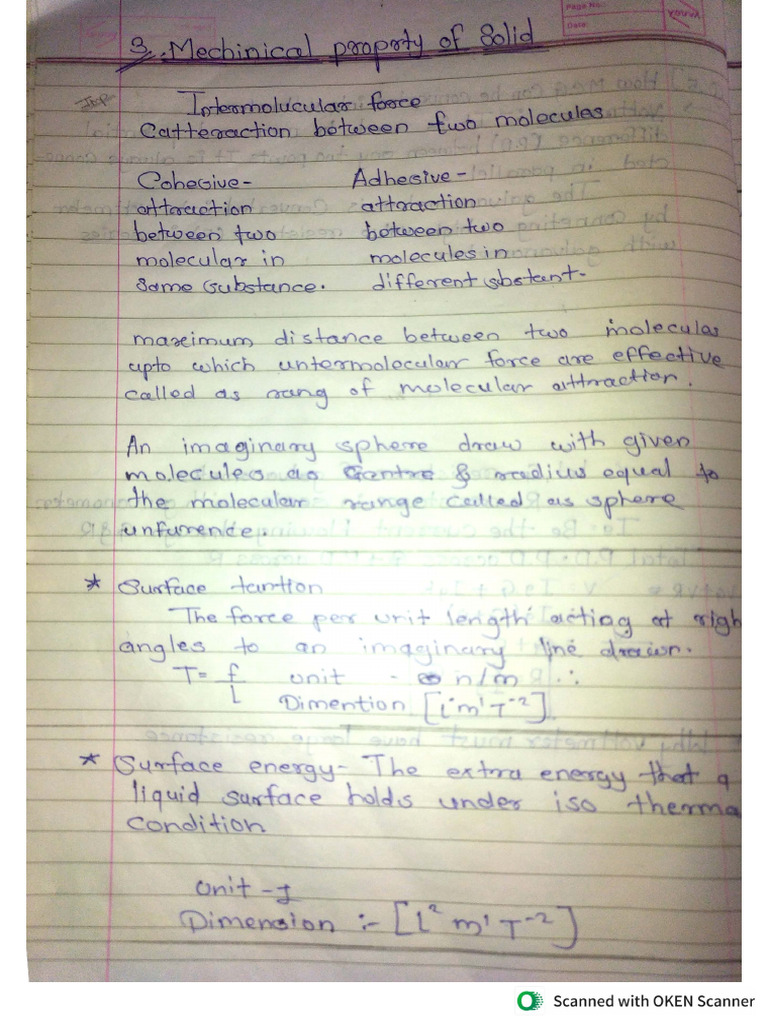 Page No.:
Date:
YOUVA
3. Mechinical property of Solid
Imp.
Intermolucular force
Catteraction between two molecules
Cohesive- Adhesive-
attraction attraction
between two between two
molecular in molecules in
Same Substance. different sbstant.
maximum distance between two molecular
upto which untermolecular force are effective
called as rang of molecular attraction.
An imaginary sphere draw with given
molecules as Centre & radius equal to
the molecular range called as sphere
unfurence.
* Surface tantion
The force per unit length acting at righ
angles to an imaginary line drawn.
T= f/L unit - n/m
Dimention [L° m¹ T⁻²].
* Surface energy- The extra energy that a
liquid surface holds under iso therma
condition
Unit - J
Dimension :- [L² m¹ T⁻²]
Scanned with OKEN Scanner